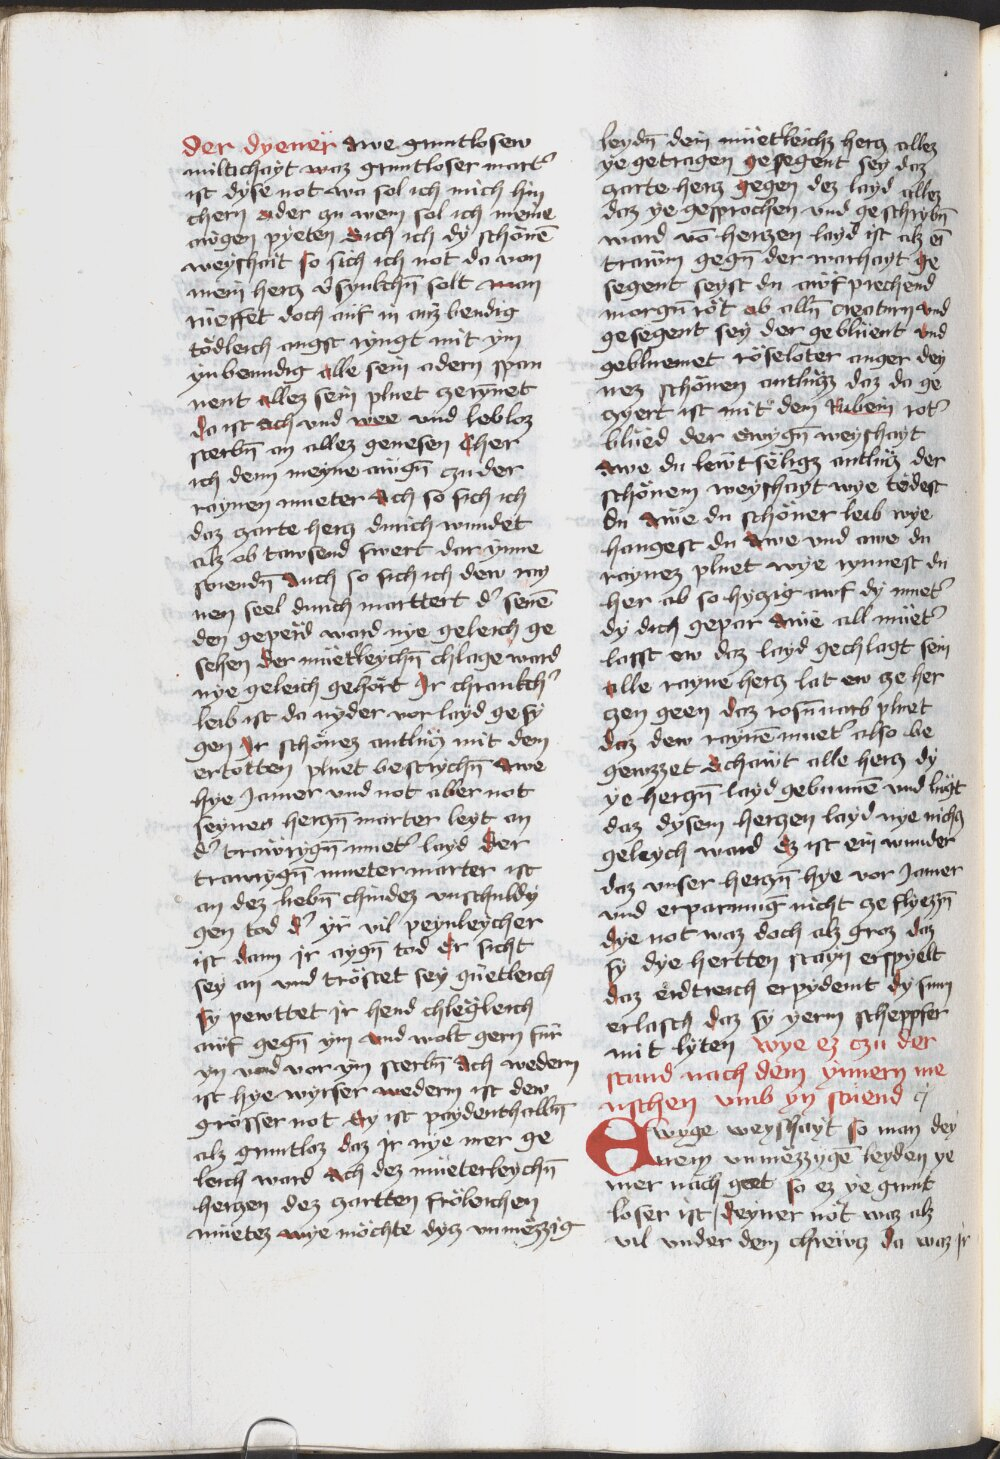 der dyener Awe gruntlosew
miltichayt waz gruntloser mart̛
ist dyse not wa sol ich mich hin
chern oder zu wem sol ich meine
awgen pyeten Sich ich dy schönē
weyshait so sich ich not da von
mein hercz v̛synkchn̄ solt man
rüeffet doch auf in auzbendig
tödleich angst ryngt mit ym
ynbenndig alle sein adern span
nent allez sein pluet czerynnet
da ist ach vnd wee vnd lebloz
sterbn̄ an allez genesen Cher
ich denn meyne awgn̄ czu der
raynen mueter Ach so sich ich
daz zarte hercz durich wundet
alz ob tawsend swert dar ynne
stuendn̄ Auch so sich ich dew ray
nen seel durich marttert d̛ senē
den geperd ward nye geleich ge
sehen der müetleychn̄ chlage ward
nye geleich gehört Ir chrankch̛
leib ist da nyder vor layd gesy
gen Ir schönez antlücz mit dem
ertötten pluet bestrychn̄ Awe
hye Jamer vnd not aber not
seynes herczn̄ marter leyt an
d̛ trawrygn̄ muet̛ layd der
trawrygn̄ mueter marter ist
an dez liebn̄ chindez vnschuldy
gen tod d̛ yr vil peynleycher
ist dann ir aygn̄ tod er sicht
sey an vnd tröstet sey güetleich
sy pewttet ir hend chlegleich
awf gegn̄ ym vnd wolt gern für
yn vnd vor ym sterbn̄ Ach wedern
ist hye wyrser wederm ist dew
grösser not Ey ist paydenthalbn̄
alz gruntloz daz ir nye mer ge
leich ward Ach dez müeterleychn̄
herczen dez zartten fröleichen
müetez wye möchte dycz vnmëzzig
leydn̄ dein müetleichz hercz allez
ye getragen gesegent sey daz
zarte hercz gegen dez layd allez
daz ye gesprochen vnd geschrybn̄
ward vō herczen layd ist alz ein
trawm gegn̄ der warhayt ge
segent seyst du awf prechend
morgn̄ röt ob alln̄ creaturn vnd
gesegent sey der geblüent vnd
gebluemet röseloter anger dey
nez schönen antlücz daz da ge
zyert ist mit dem Rubein rot̛
blüed der ewygn̄ weyshayt
Awe du lewtsëligz antlücz der
schönem weyshayt wye tödest
du Awe du schöner leib wye
hangest du Awe vnd awe du
raynez pluet wye rynnest du
her ab so hyczig awf dy muet̛
dy dich gepar Awe all müet̛
lasst ew daz layd gechlagt sein
alle rayne hercz lat ew ze her
czen geen daz rosn̄uarb pluet
daz dew raynē muet̛ also be
gewzzet Schawt alle hercz dy
ye herczn̄ layd gebunnē vnd lügt
daz dysem herczen layd nye nichcz
geleych ward Ez ist ein wunder
daz vnser herczn̄ hye vor Jamer
vnd erparmūg nicht ze flyezzn̄
dye not waz doch alz groz daz
sy dye hertten stayn erspyelt
daz erdtreich erpydemt dy sunn
erlasch daz sy yerm scheppfer
mit lyten wye ez czu der
stund nach dem ynnern me
nschen vmb yn stüend cj
Ewyge weyshayt so man dey
nem vnmëzzygē leyden ye
mer nach geet so ez ye grunt
loser ist / deyner nöt waz alz
vil vnder dem chrewcz da waz ir